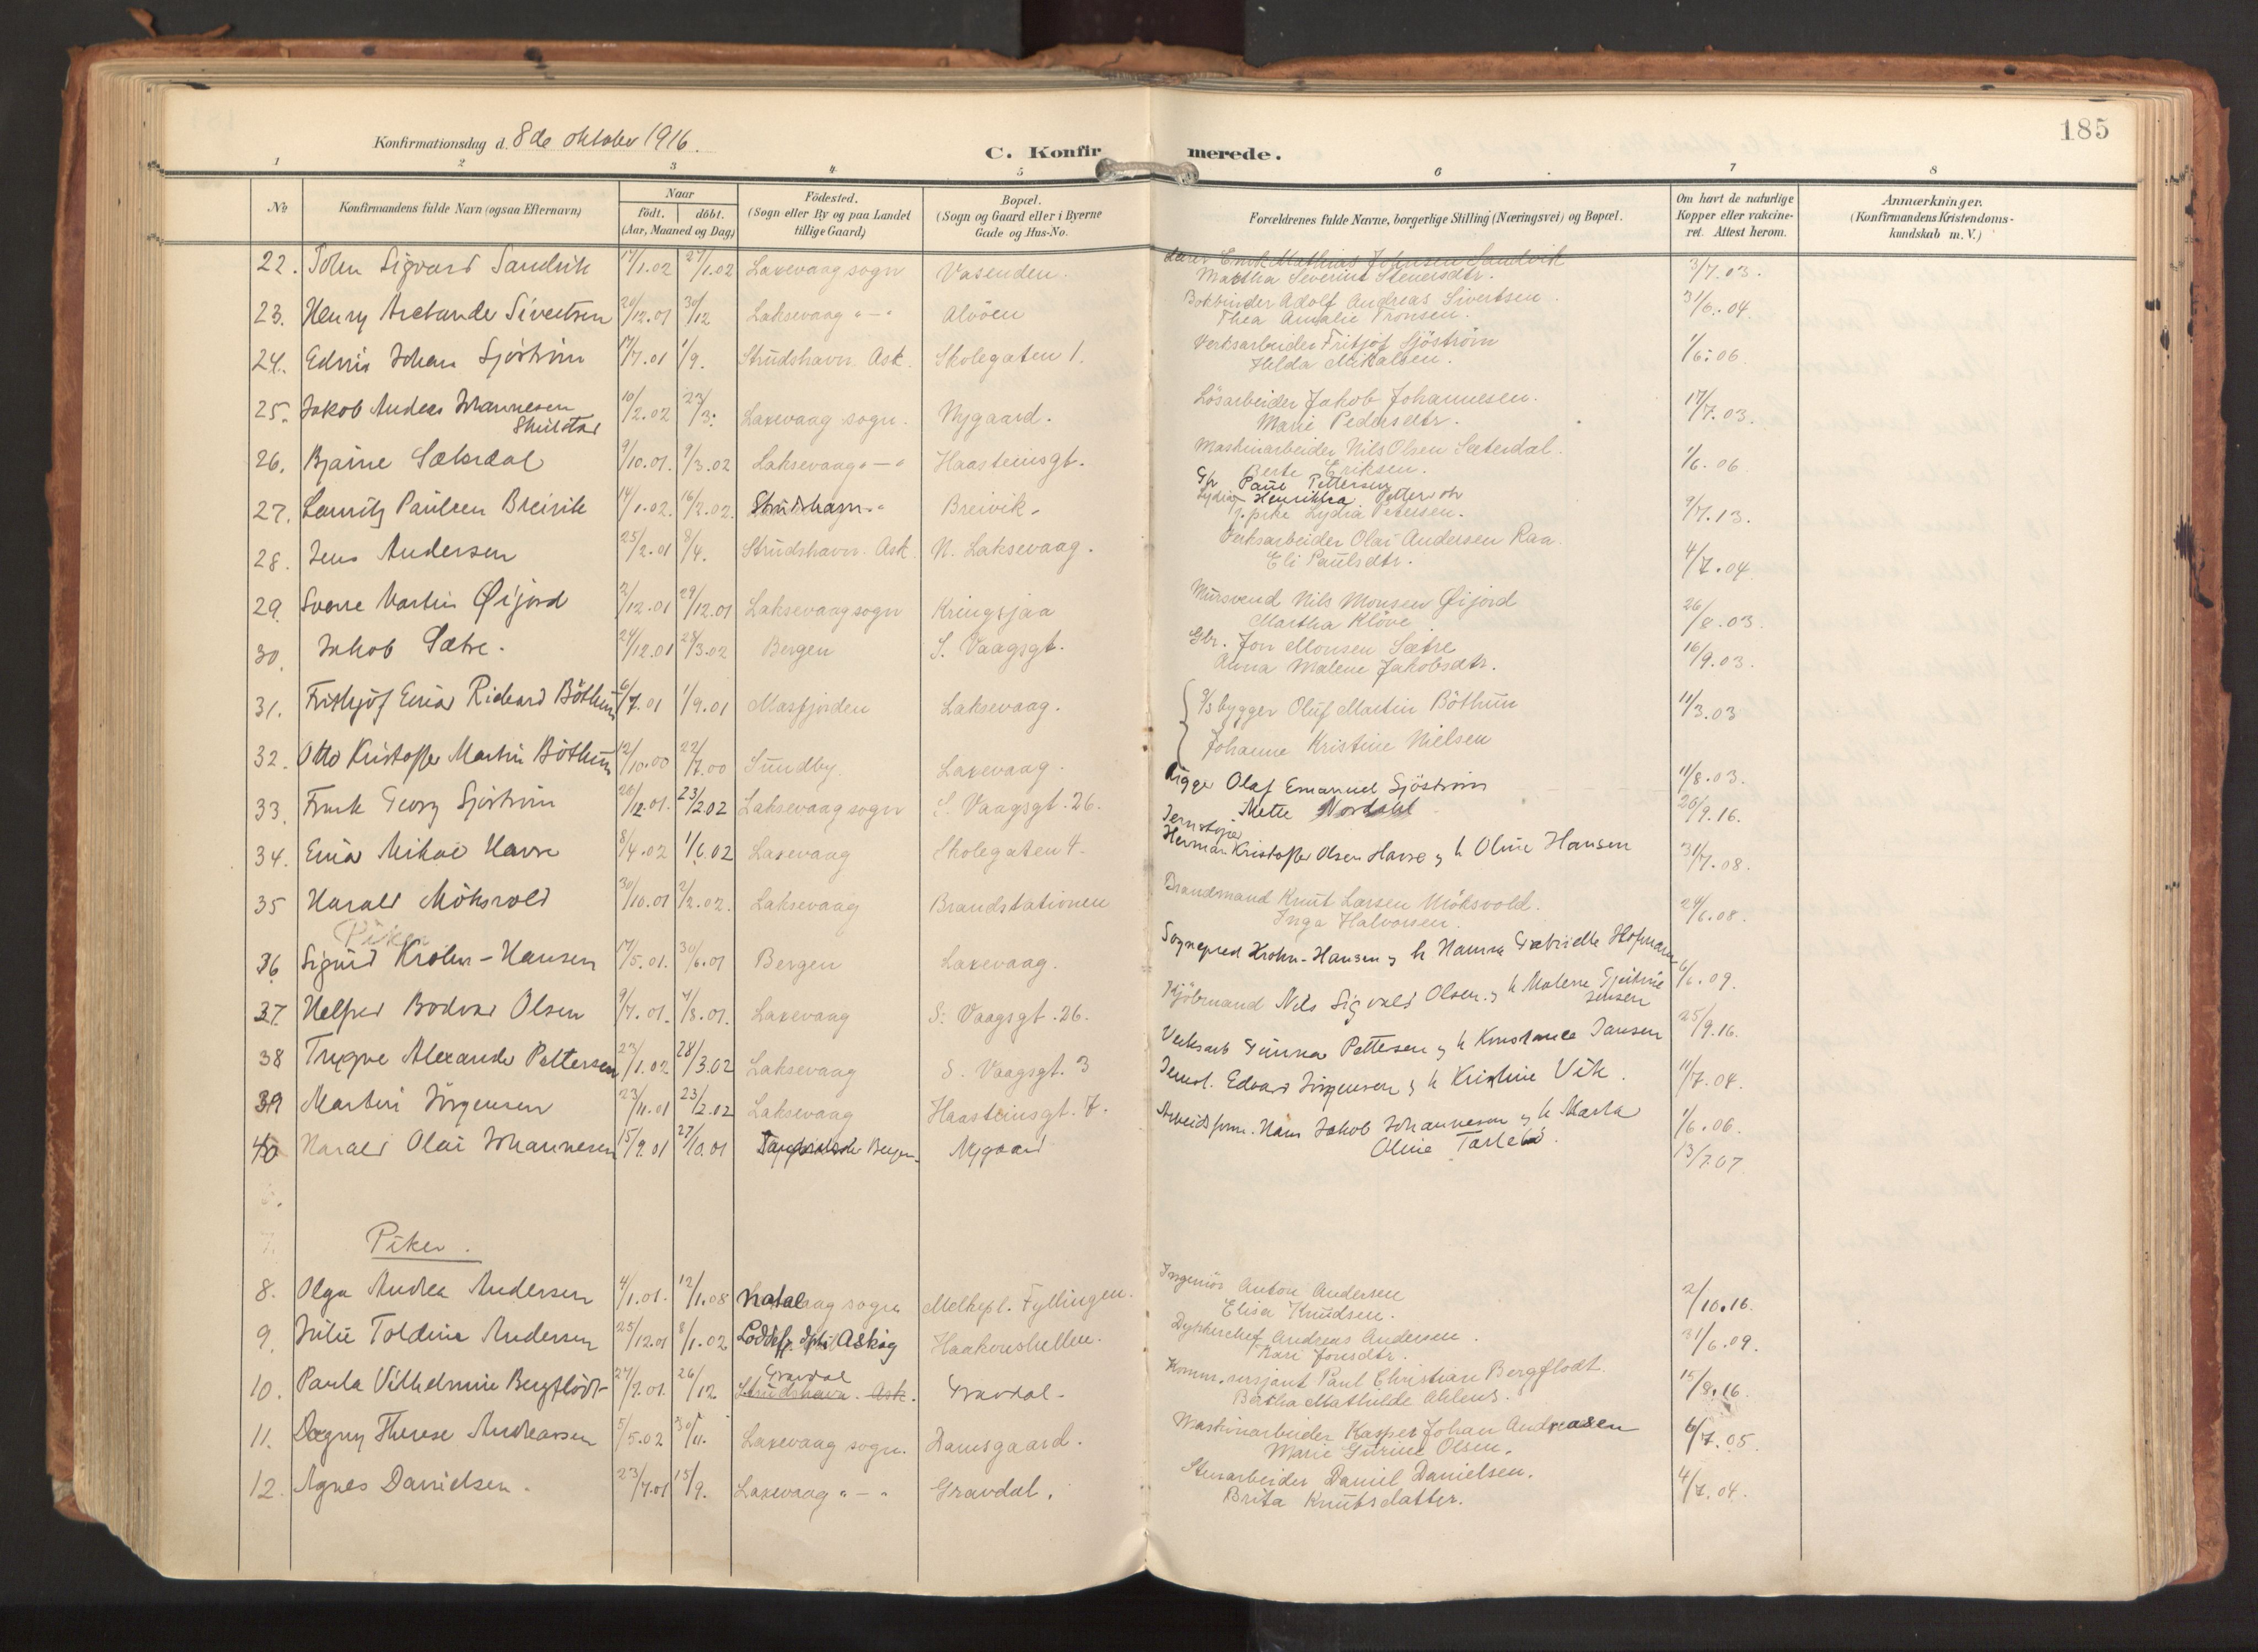 185
Konfirmationsdag d. 8de oktober 1916.
C. Konfirmerede.
1 2 3 4 5 6 7 8
No Konfirmandens fulde Navn (ogsaa Efternavn) Naar født. døbt. (Aar, Maaned og Dag) Födested. (Sogn eller By og paa Landet tillige Gaard) Bopæl. (Sogn og Gaard eller i Byerne Gade og Hus-No. Forældrenes fulde Navne, borgerlige Stilling (Næringsvei) og Bopæl. Om havt de naturlige Kopper eller vakcineret. Attest herom. Anmærkninger. (Konfirmandens Kristendomskundskab m. V.)
22. John Sigvard Sandvik 17/1.02 27/1.02 Laxevaag sogn Vasenden. Emil Mathias Johnsen Sandvik 3/7.03.
Martha Severine Steuersdtr.
23. Henry Sivertsen 20/12.01 30/12 Laksevaag "-" Alvöen Bokbinder Adolf Andreas Sivertsen. 31/6.04.
Thea Amalie Tronsen.
24. Edvin Johan Sjöström 17/7.01 1/9. Strudshavn. Ask. Skolegaten 1. Verksarbeider Fritjof Sjöström 1/6.06
Hilda Mikalsen.
25. Jakob Anders Johannesen 10/2.02 23/3. Laxevaag sogn. Nygaard. Lösarbeider Jakob Johannesen. 17/7.03.
Skulstad Marie Pedersdtr.
26. Bjarne Sæterdal 9/10.01. 9/3.02 Laksevaag "-" Haasteinsgt. Maskinarbeider Nils Olsen Sæterdal. 1/6.06
Berte Eriksen.
Gbr Paul Pettersen
27. Lauritz Paulsen Breivik 14/1.02. 16/2.02. Strudshavn Breivik. Lydia Henrikka Pettersen 9/7.13.
p. pike Lydia Petersen.
28. Jens Andersen 25/2.01 8/4. Strudshavn. Ask. N. Laksevaag. Verksarbeider Olai Andersen Raa. 4/7.04
Eli Paulsdtr.
29. Sverre Martin Øijord 2/12.01 29/12.01 Laksevaag sogn Kringsjaa Mursvend Nils Monsen Øijord 26/8.03.
Martha Klöve
30. Jakob Sætre. 24/12.01 28/3.02 Bergen S. Vaagsgt. Gbr. Jon Monsen Sætre 16/9.03.
Anna Malene Jakobsdtr.
31. Frithjof Einar Richard Böthun 6/7.01 1/9.01 Masfjorden Laksevaag. bygger Oluf Martin Böthun 11/3.03
32. Otto Kristoffer Martin Böthun 12/10.00 22/7.00 Sundby. Laxevaag. Johanne Kristine Nielsen 11/8.03.
33. Frank Georg Sjöström 20/12.01. 23/2.02 Laksevaag sogn S. Vaagsgt. 26. Rigger Olaf Emanuel Sjöström 20/9.16.
Mette Nordahl
34. Einar Mikal Havre 8/4.02 1/6.02 Laxevaag Skolegaten 4. Jernstøper 31/7.08.
Herman Kristoffer Olsen Havre og h Oline Hansen
35 Harald Möksvold 30/10.01 2/2.02. Laksevaag Brandstationen Brandmand Knut Larsen Möksvold. 24/6.08.
Inga Halvorsen.
Piker
36. Sigurd Krohn-Hansen 17/5.01. 30/6.01 Bergen Laxevaag. Sognepred Krohn-Hansen og h Hanna Gabrielle Hofmann 6/6.09.
37. Helfred Bodvar Olsen 9/7.01. 4/8.01. Laxevaag S. Vaagsgt. 26. Kjöbmand Nils Sigvald Olsen og h Malene 25/9.16.
Jensen
38 Trygve Alexander Pettersen 23/1.02. 28/3.02 Laksevaag S. Vaagsgt. 3 Verksarb Gunnar Pettersen og h Konstance Jansen 11/7.04.
39 Martin Jörgensen 23/11.01 23/2.02 Laksevaag Haasteinsgt. 7. Edvard Jörgensen og h Kristine Vik. 1/6.06.
40 Harald Olai Johannesen 15/9.01 27/10.01 Bergen. Nygaard Arbeidsform. Hans Jakob Johannesen og h Marta 13/7.07
Oline
Piker.
8. Olga Andrea Andersen 4/1.01. 12/1.08 Natal sogn Melkepl. Fyllingen. Ingeniör Anton Andersen 2/10.16.
Elisa Knudsen.
9. Julie Toldine Andersen 25/12.01 8/1.02 Loddefj. dpt i Askøy Haakonshellen. Dykkerchef Andreas Andersen. 31/6.09.
Kari Jonsdtr.
10. Paula Vilhelmine Bergflödt 27/7.01. 26/12 Gravdal Strudshavn. Ask. Gravdal. Komm. sersjant Paul Christian Bergflodt. 15/8.16.
Bertha Mathilde Ahlens.
11. Dagny Therese Andreassen 5/5.02 30/11. Laxevaag sogn. Damsgaard. Maskinarbeider Kasper Johan Andreasen 6/7.05.
Marie Gurine Olsen.
12. Agnes Danielsen. 23/7.01 15/9. Laxevaag "-" Gravdal. Stenarbeider Daniel Danielsen. 4/7.04.
Brita Knutsdatter.